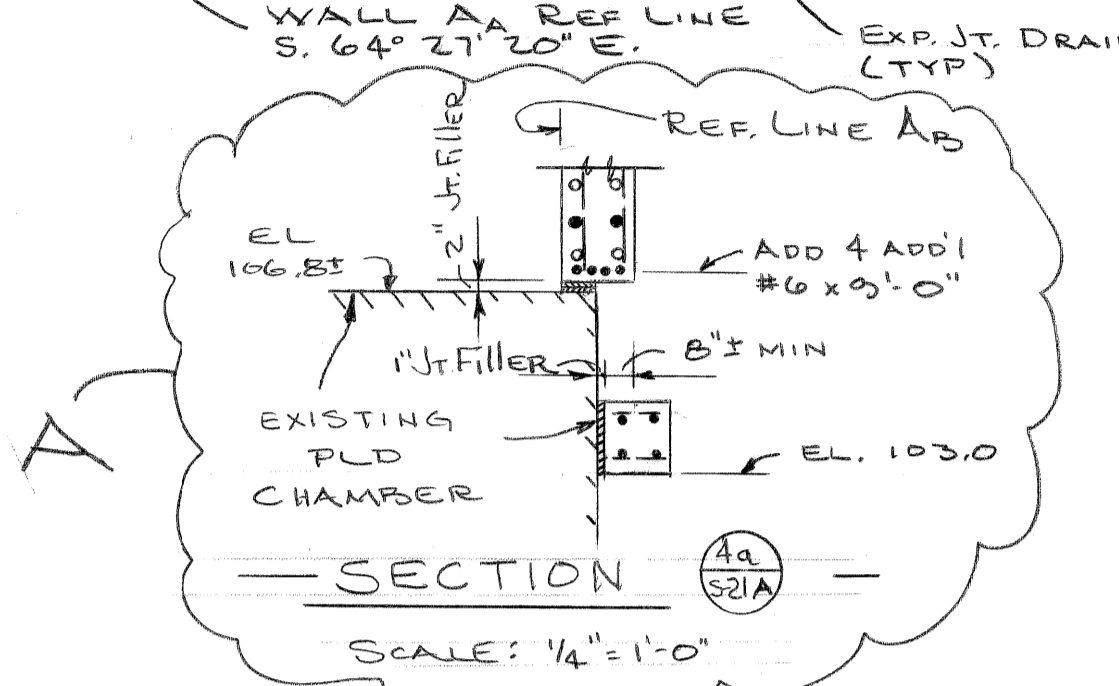 WALL AA REF LINE
S. 64° 27' 20" E.
EXP. JT. DRAI
(TYP)
2" Jt. Filler
REF. LINE AB
EL
106.8±
ADD 4 ADD'l
#6 x 9'-0"
1" JT. FILLER
8"± MIN
A
EXISTING
PLD
CHAMBER
EL. 103.0
SECTION
4a
S-21A
SCALE: 1/4" = 1'-0"